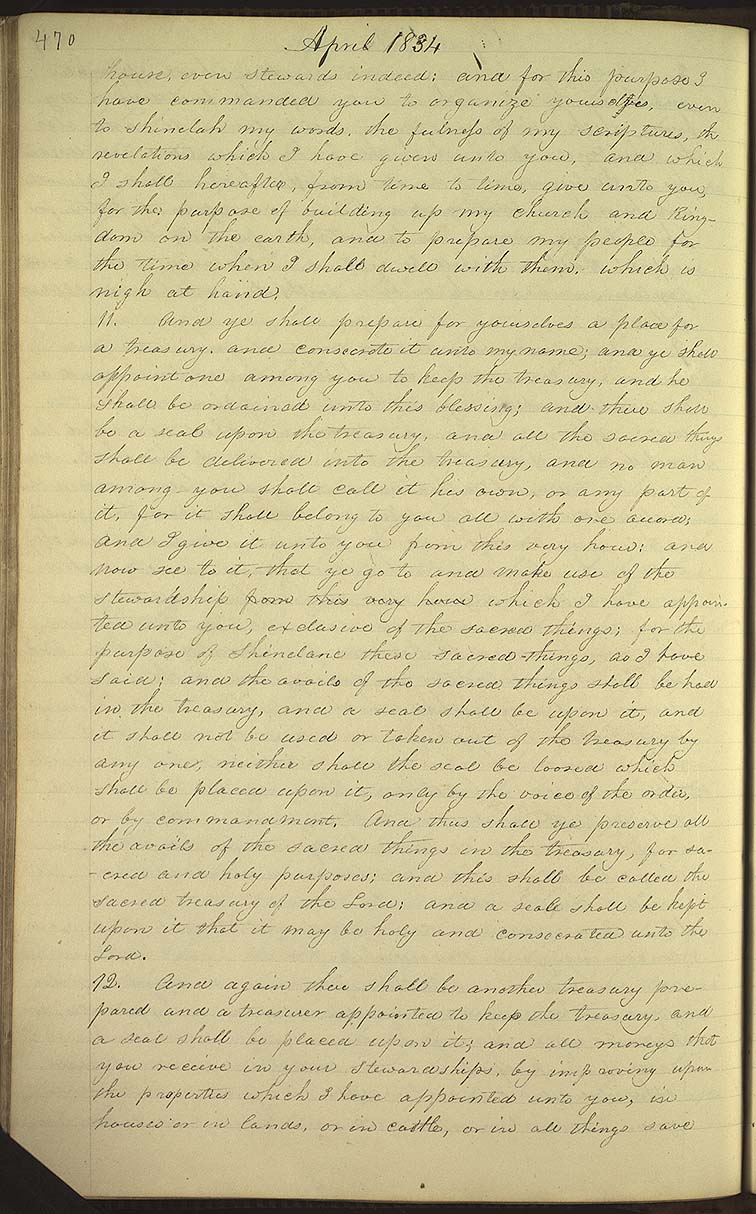 470
April 1834
house, even stewards indeed: and for this purpose I
have commanded you to organize yourselves, even
to Shinelah my words, the fulness of my scriptures, the
revelations which I have given unto you, and which
I shall hereafter, from time to time, give unto you,
for the purpose of building up my church and King-
dom on the earth, and to prepare my people for
the time when I shall dwell with them, which is
nigh at hand.
11. And ye shall prepare for yourselves a place for
a treasury. and consecrate it unto my name; and ye shall
appoint one among you to keep the treasury, and he
shall be ordained unto this blessing; and there shall
be a seal upon the treasury, and all the sacred things
shall be delivered into the treasury, and no man
among you shall call it his own, or any part of
it, for it shall belong to you all with one accord;
and I give it unto you from this very hour: and
now see to it, that ye go to and make use of the
stewardship from this very hour which I have appoin-
ted unto you, exclusive of the sacred things; for the
purpose of Shinelane these sacred things, as I have
said: and the avails of the sacred things shall be had
in the treasury, and a seal shall be upon it, and
it shall not be used or taken out of the treasury by
any one, neither shall the seal be loosed which
shall be placed upon it, only by the voice of the order,
or by commandment. And thus shall ye preserve all
the avails of the sacred things in the treasury, for sa-
-cred and holy purposes: and this shall be called the
sacred treasury of the Lord; and a seale shall be kept
upon it that it may be holy and consecrated unto the
Lord.
12. And again there shall be another treasury pre-
pared and a treasurer appointed to keep the treasury, and
a seal shall be placed upon it; and all moneys that
you receive in your stewardships, by improving upon
the properties which I have appointed unto you, in
houses or in lands, or in cattle, or in all things save